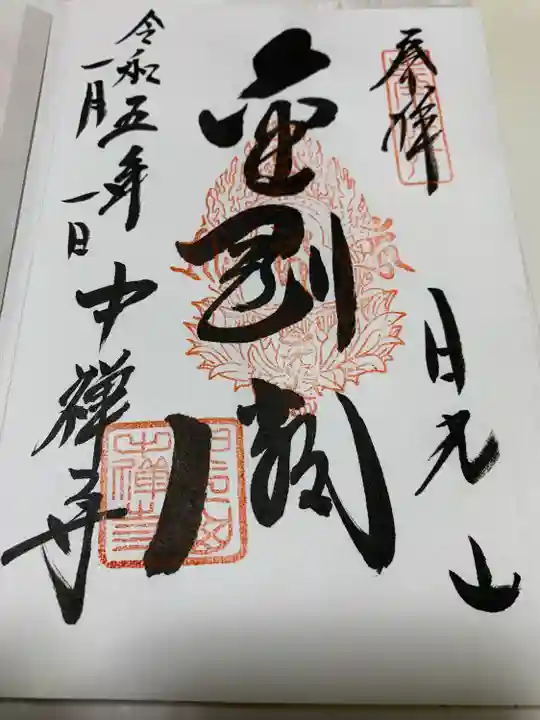 奉拝
日光山
金剛願
令和五年
一月一日
中禅寺